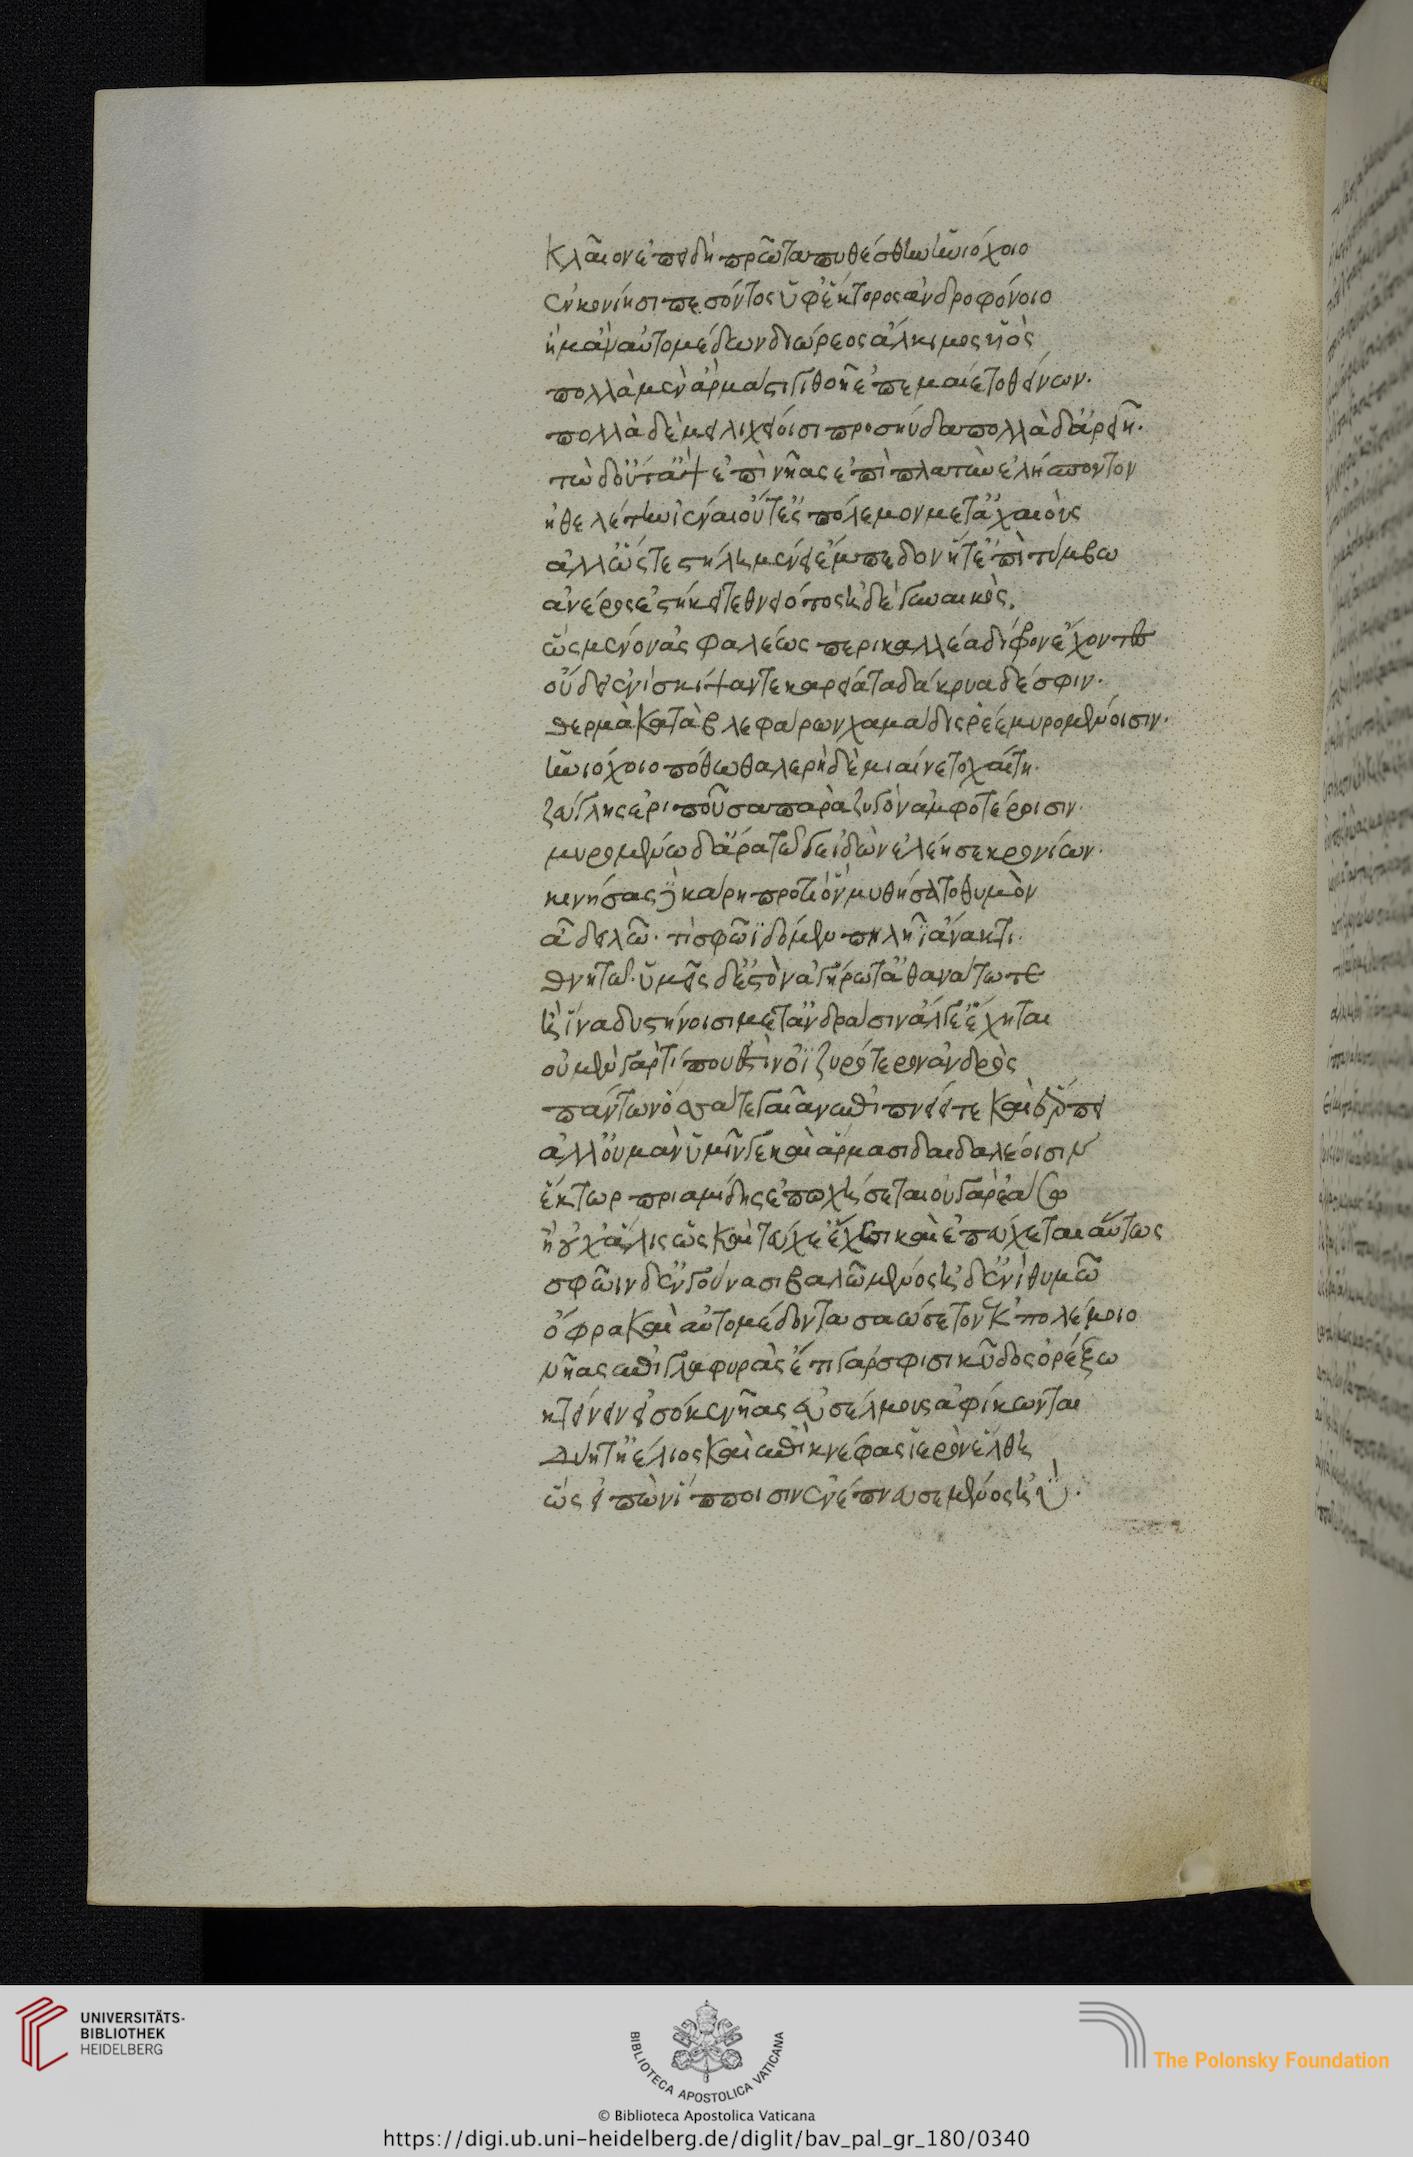 κλαῖον ἐπειδὴ πρῶτα πυθέσθην ἡνιόχοιο
ἐν κονίησι πεσόντος ὑφ' ἕκτορος ἀνδροφόνοιο
ἦ μὰν αὐτομέδων διώρεος ἄλκιμος υἱὸς
πολλὰ μὲν ἂρ μάστιγι θοῇ ἐπεμαίετο θείνων.
πολλὰ δὲ μειλιχίοισι προσηύδα πολλὰ δ' ἀρειῇ.
τὼ δ' οὔτ' ἂψ ἐπὶ νῆας ἐπὶ πλατὺν ἑλήσποντον
ἠθελέτην ἰέναι οὔτ' ἐς πόλεμον μετ' ἀχαιοὺς
ἀλλ' ὥς τε στήλη μένει ἔμπεδον ἥτ' ἐπὶ τύμβω
ἀνέρος ἑστήκει τεθνειότος ἠὲ γυναικὸς.
ὣς μένον ἀσφαλέως περικαλλέα δίφρον ἔχοντε
οὔδει ἐνισκίψαντε καρείατα δάκρυα δέ σφιν.
θερμὰ κατὰ βλεφάρων χαμάδις ῥέε μυρομένοισιν.
ἡνιόχοιο πόθω θαλερὴ δὲ μιαίνετο χαίτη.
ζεύγλης ἐριποῦσα παρὰ ζυγὸν ἀμφοτέροισιν.
μυρομένω δ' ἄρα τώ γε ἰδὼν ἐλέησε κρονίων.
κινήσας δὲ κάρη προτὶ ὃν μυθήσατο θυμὸν
ἆ δειλῶ. τί σφῶϊ δόμεν πηλῆϊ ἄνακτι.
θνητῶ. ὑμεῖς δ' ἐστὸν ἀγήρω τ' ἀθανάτω τε
ἦ ἵνα δυστήνοισι μετ' ἀνδράσιν ἄλγε' ἔχητον
οὐ μὲν γάρ τί που ἐστὶν ὀϊζυρότερον ἀνδρὸς
πάντων ὅσσα τε γαῖαν ἔπι πνείει τε καὶ ἕρπει
ἀλλ' οὐ μὰν ὑμῖν γε καὶ ἅρμασι δαιδαλέοισιν
ἕκτωρ πριαμίδης ἐποχήσεται οὐ γὰρ ἐάσω
ἦ οὐχ ἅλις ὡς καὶ τεύχε' ἔχει καὶ ἐπεύχεται αὕτως
σφῶιν δ' ἐν γούνασι βαλῶ μένος ἠδ' ἐνὶ θυμῶ
ὄφρα καὶ αὐτομέδοντα σαώσετον ἐκ πολέμοιο
νῆας ἔπι γλαφυρὰς ἔτι γάρ σφισι κῦδος ὀρέξω
κτείνειν εἰσόκε νῆας ἐϋσέλμους ἀφίκωνται
δύη τ' ἠέλιος καὶ ἐπὶ κνέφας ἱερὸν ἔλθη
ὣς εἰπὼν ἵπποισιν ἐνέπνευσε μένος ἠΰ.
UNIVERSITÄTS-
BIBLIOTHEK
HEIDELBERG
BIBLIOTECA APOSTOLICA VATICANA
The Polonsky Foundation
© Biblioteca Apostolica Vaticana
https://digi.ub.uni-heidelberg.de/diglit/bav_pal_gr_180/0340